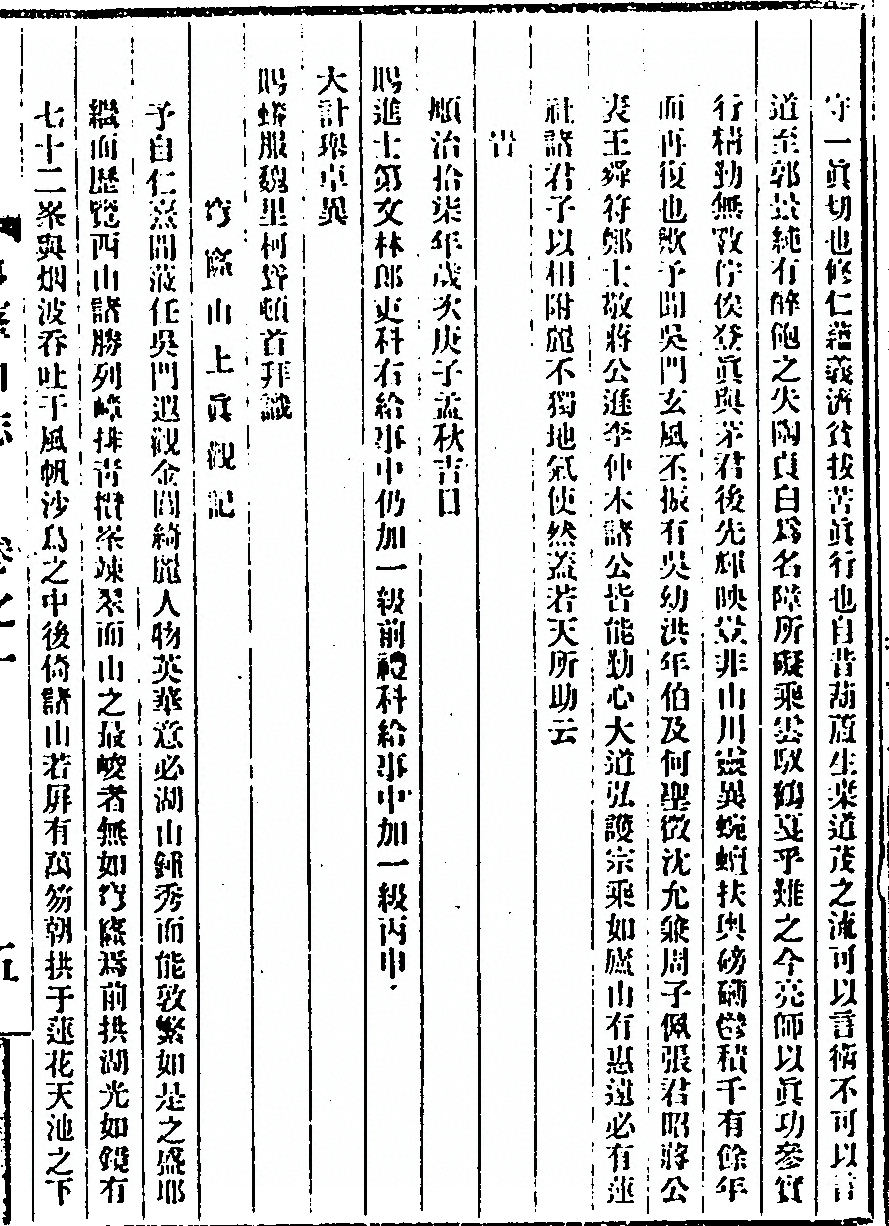 守一眞切也修仁蘊義濟貧拔苦眞行也自昔葫蘆生桒道茂之流可以言術不可以言
道至郭景純有醉飽之失陶貞白爲名障所礙乘雲馭鶴戛乎難之今亮師以眞功參實
行精勤無斁佇俟登眞與茅君後先輝映豈非山川靈異蜿蟺扶輿磅礴鬱積千有餘年
而再復也歟予聞吳門玄風丕振有吳幼洪年伯及何聖徵沈允兼周子佩張君昭蔣公
表王舜符鄭士敬蔣公遜李仲木諸公皆能勤心大道弘護宗乘如廬山有惠遠必有蓮
社諸君子以相附麗不獨地氣使然蓋若天所助云
旹
順治拾柒年歲次庚子孟秋吉日
賜進士第文林郎吏科右給事中仍加一級前禮科給事中加一級丙申
大計舉卓異
賜蟒服魏里柯聳頓首拜識
穹窿山上眞觀記
予自仁菴間蒞任吳門遐觀金閶綺麗人物英華意必湖山鍾秀而能敦繁如是之盛耶
繼而歷覽西山諸勝列嶂排青攢峯竦翠而山之最峻者無如穹窿焉前拱湖光如鏡有
七十二峯與烟波吞吐于風帆沙鳥之中後倚諸山若屏有萬笏朝拱于蓮花天池之下
卷之一
五